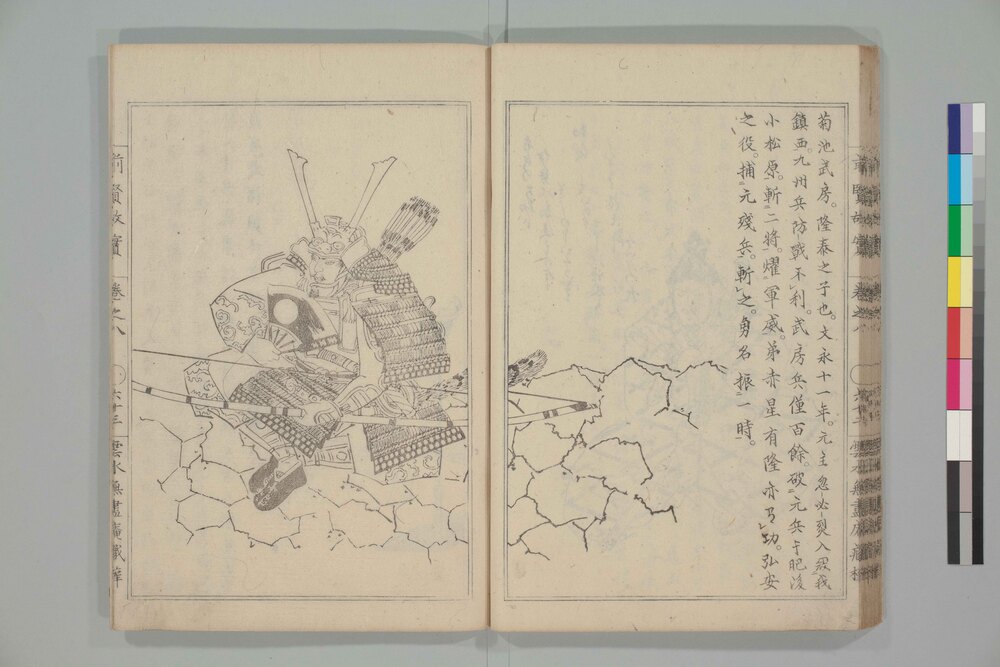 菊池武房。隆泰之子也。文永十一年。元主忽必烈入寇我
鎮西。九州兵防戰不利。武房兵僅百餘。破元兵于肥後
小松原。斬二將。燿軍威。弟赤星有隆亦有功。弘安
之役。捕元殘兵。斬之。勇名振一時。
前賢故實
卷之八
六十三